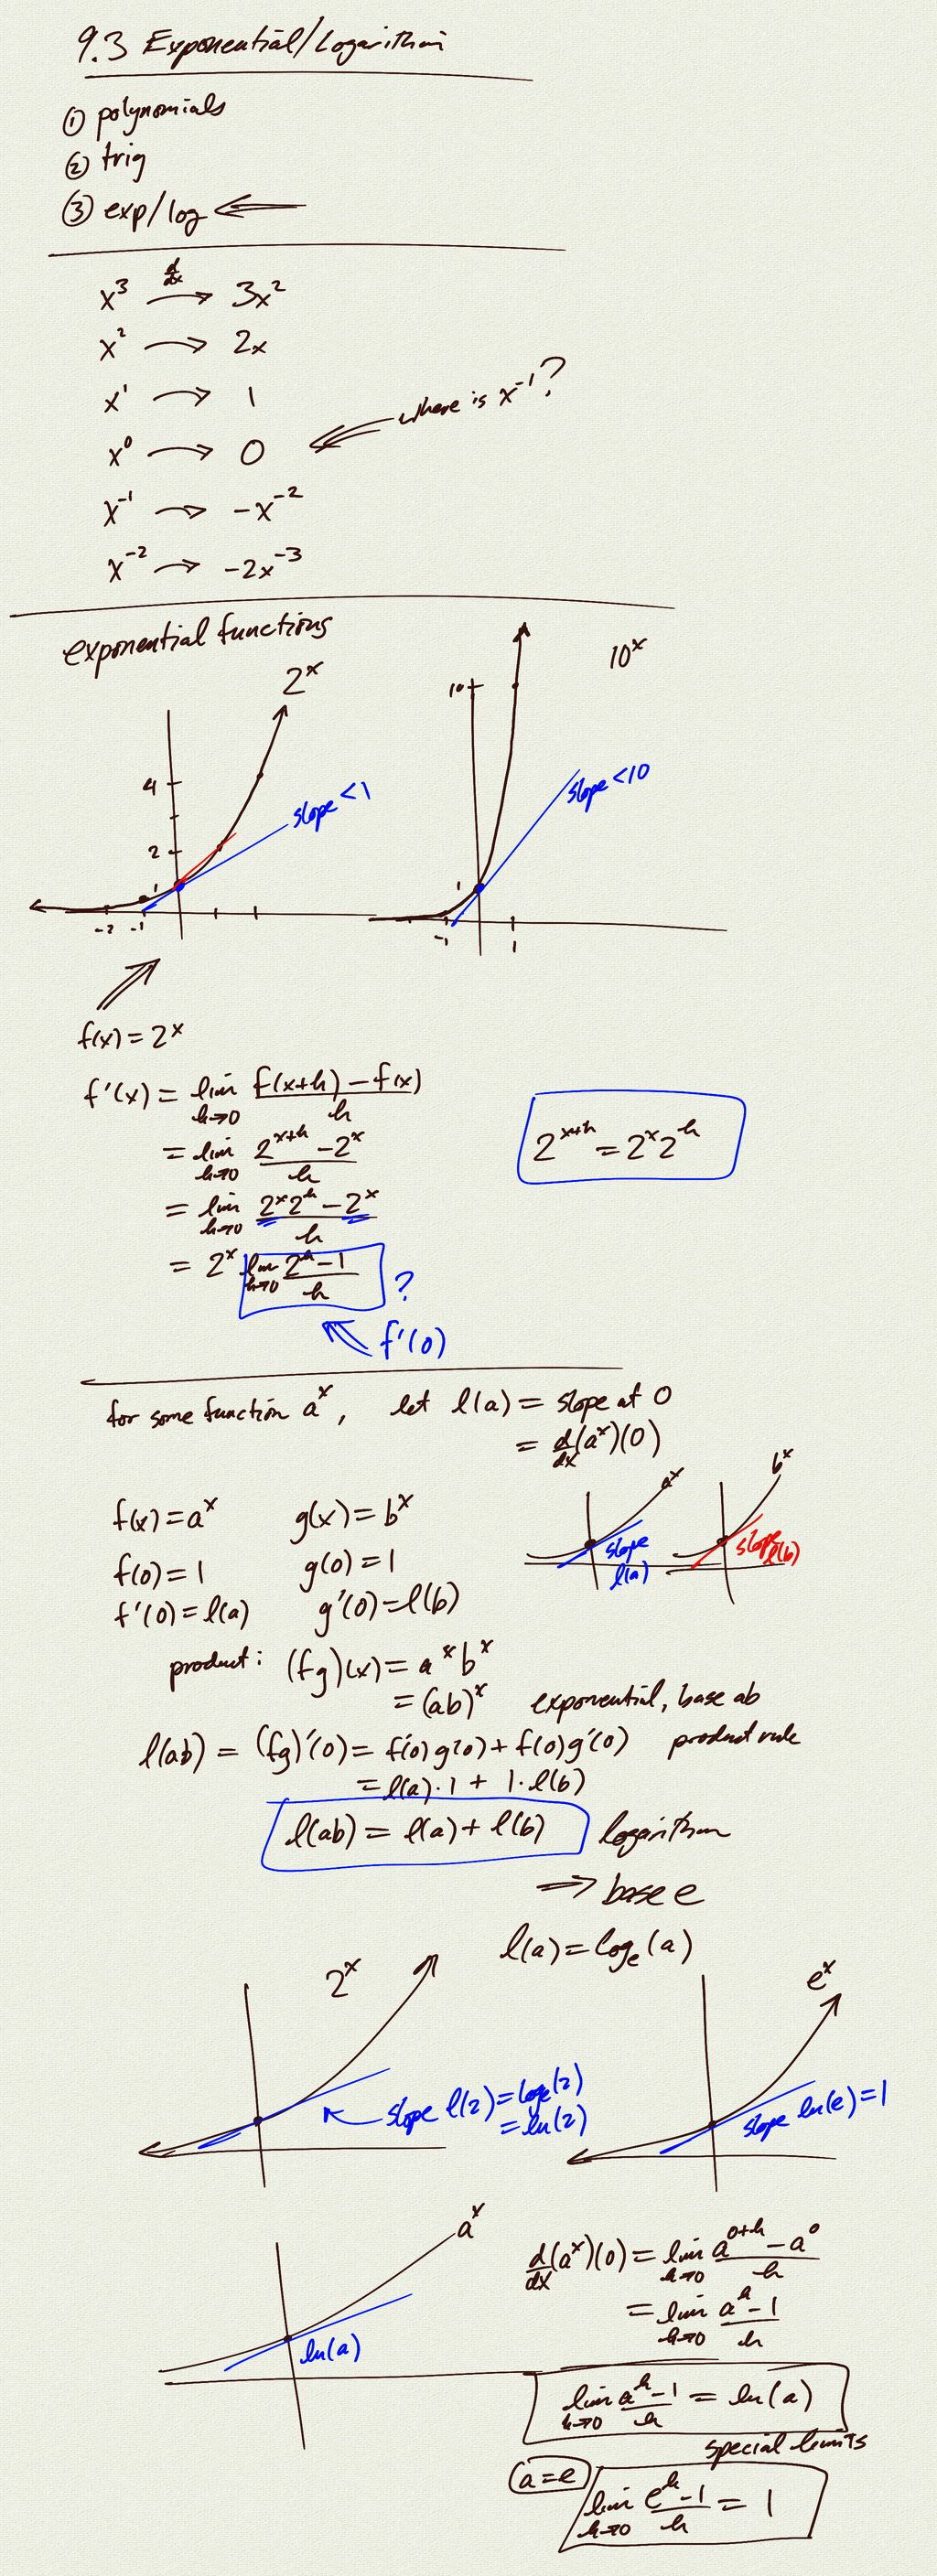 9.3 Exponential/Logarithm
① polynomials
② trig
③ exp/log ⇐
x³ d/dx → 3x²
x² → 2x
x¹ → 1
x⁰ → 0 ⇐ where is x⁻¹?
x⁻¹ → -x⁻²
x⁻² → -2x⁻³
exponential functions
2ˣ
4
2
1
-2 -1
slope <1
10ˣ
10
1
-1 1
slope <10
f(x) = 2ˣ
f'(x) = lim h→0 (f(x+h) - f(x))/h
= lim h→0 (2ˣ⁺ʰ - 2ˣ)/h
2ˣ⁺ʰ = 2ˣ2ʰ
= lim h→0 (2ˣ2ʰ - 2ˣ)/h
= 2ˣ lim h→0 (2ʰ - 1)/h ?
f'(0)
for some function aˣ, let l(a) = slope at 0
= d/dx(aˣ)(0)
aˣ
slope
l(a)
bˣ
slope
l(b)
f(x) = aˣ g(x) = bˣ
f(0) = 1 g(0) = 1
f'(0) = l(a) g'(0) = l(b)
product: (fg)(x) = aˣbˣ
= (ab)ˣ exponential, base ab
l(ab) = (fg)'(0) = f'(0)g(0) + f(0)g'(0) product rule
= l(a)·1 + 1·l(b)
l(ab) = l(a) + l(b) logarithm
⇒ base e
l(a) = logₑ(a)
2ˣ
slope l(2) = logₑ(2)
= ln(2)
eˣ
slope ln(e) = 1
aˣ
ln(a)
d/dx(aˣ)(0) = lim h→0 (a⁰⁺ʰ - a⁰)/h
= lim h→0 (aʰ - 1)/h
lim h→0 (aʰ - 1)/h = ln(a)
special limits
(a = e)
lim h→0 (eʰ - 1)/h = 1